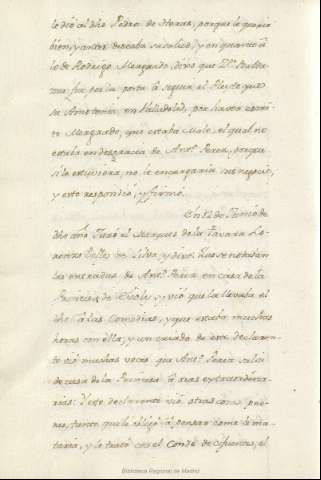 le dió al dho Pedro de Horas, porque le queria
bien, y antes deseaba su salud, y en quanto á
lo de Rodrigo Morgardo, dixo que
fue por la posta á seguir el Pleyto que
se en Valladolid, por hasta
Morgardo, que estaba Malo, el qual no
estaba en desgracia de Ant.º Perez, porque
si lo estuviera, no le encargaria sus negocios,
y esto respondió, y firmó.
En 12 de Junio de
dho año Juró el Marques de la Favara
de Silva, y dixo: Que se notaban
las entradas de Ant.º Perez en casa de la
Princesa de Eboly, y vió que la llevaba el
dho á las Comedias, y que estaba muchas
horas con ella; y un criado de este declaran-
te vió muchas veces que Ant.º Perez salia
de casa de la Princesa á oras extraordina-
rias: Y este declarante vió otras cosas
tanto que le obligó á pensar como á ma-
taria, y lo trató con el Conde de Cifuentes, el
Biblioteca Regional de Madrid